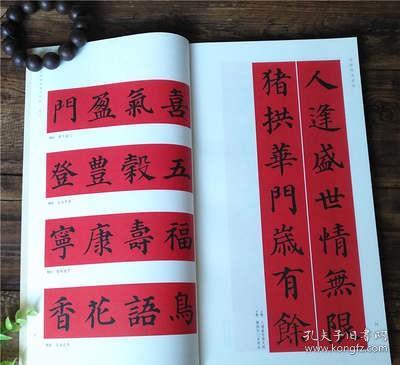 喜氣盈門
五穀豐登
福壽康寧
鳥語花香
人逢盛世情無限
猪拱華門歲有餘
孔夫子旧书网
www.kongfz.com